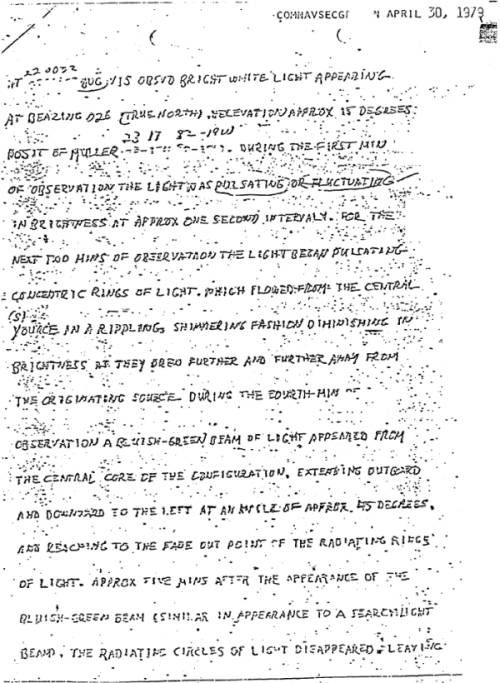 COMNAVSECGR APRIL 30, 1979
AT 220032 AUG, VIS OBSVD BRIGHT WHITE LIGHT APPEARING
AT BEARING 026 (TRUE NORTH), ELEVATION APPROX 15 DEGREES.
23 17 82
POSIT OF MULLER DURING THE FIRST MIN
OF OBSERVATION THE LIGHT WAS PULSATING OR FLUCTUATING
IN BRIGHTNESS AT APPROX ONE SECOND INTERVALY. FOR THE
NEXT TWO MINS OF OBSERVATAON THE LIGHT BEGAN PULSATING
CONCENTRIC RINGS OF LIGHT. WHICH FLOWED FROM THE CENTRAL
(S)
YOURCE IN A RIPPLING, SHIMMERING FASHION DIMINISHING IN
BRIGHTNESS AT THEY DREW FURTHER AND FURTHER AWAY FROM
THE ORIGINATING SOURCE DURING THE FOURTH MIN OF
OBSERVATION A BLUISH-GREEN BEAM OF LIGHT APPEARED FROM
THE CENTRAL CORE OF THE CONFIGURATION, EXTENDING OUTWARD
AND DOWNWARD TO THE LEFT AT AN ANGLE OF APPROX 45 DEGREES,
AND REACHING TO THE FADE OUT POINT OF THE RADIATING RINGS
OF LIGHT. APPROX FIVE MINS AFTER THE APPEARANCE OF THE
BLUISH-GREEN BEAM (SIMILAR IN APPEARANCE TO A SEARCHLIGHT
BEAM), THE RADIATING CIRCLES OF LIGHT DISAPPEARED, LEAVING